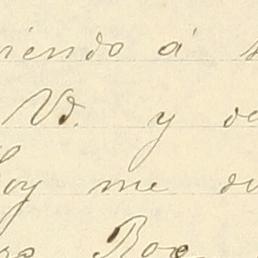 iendo á
Vd. y de
hoy me di
Roe